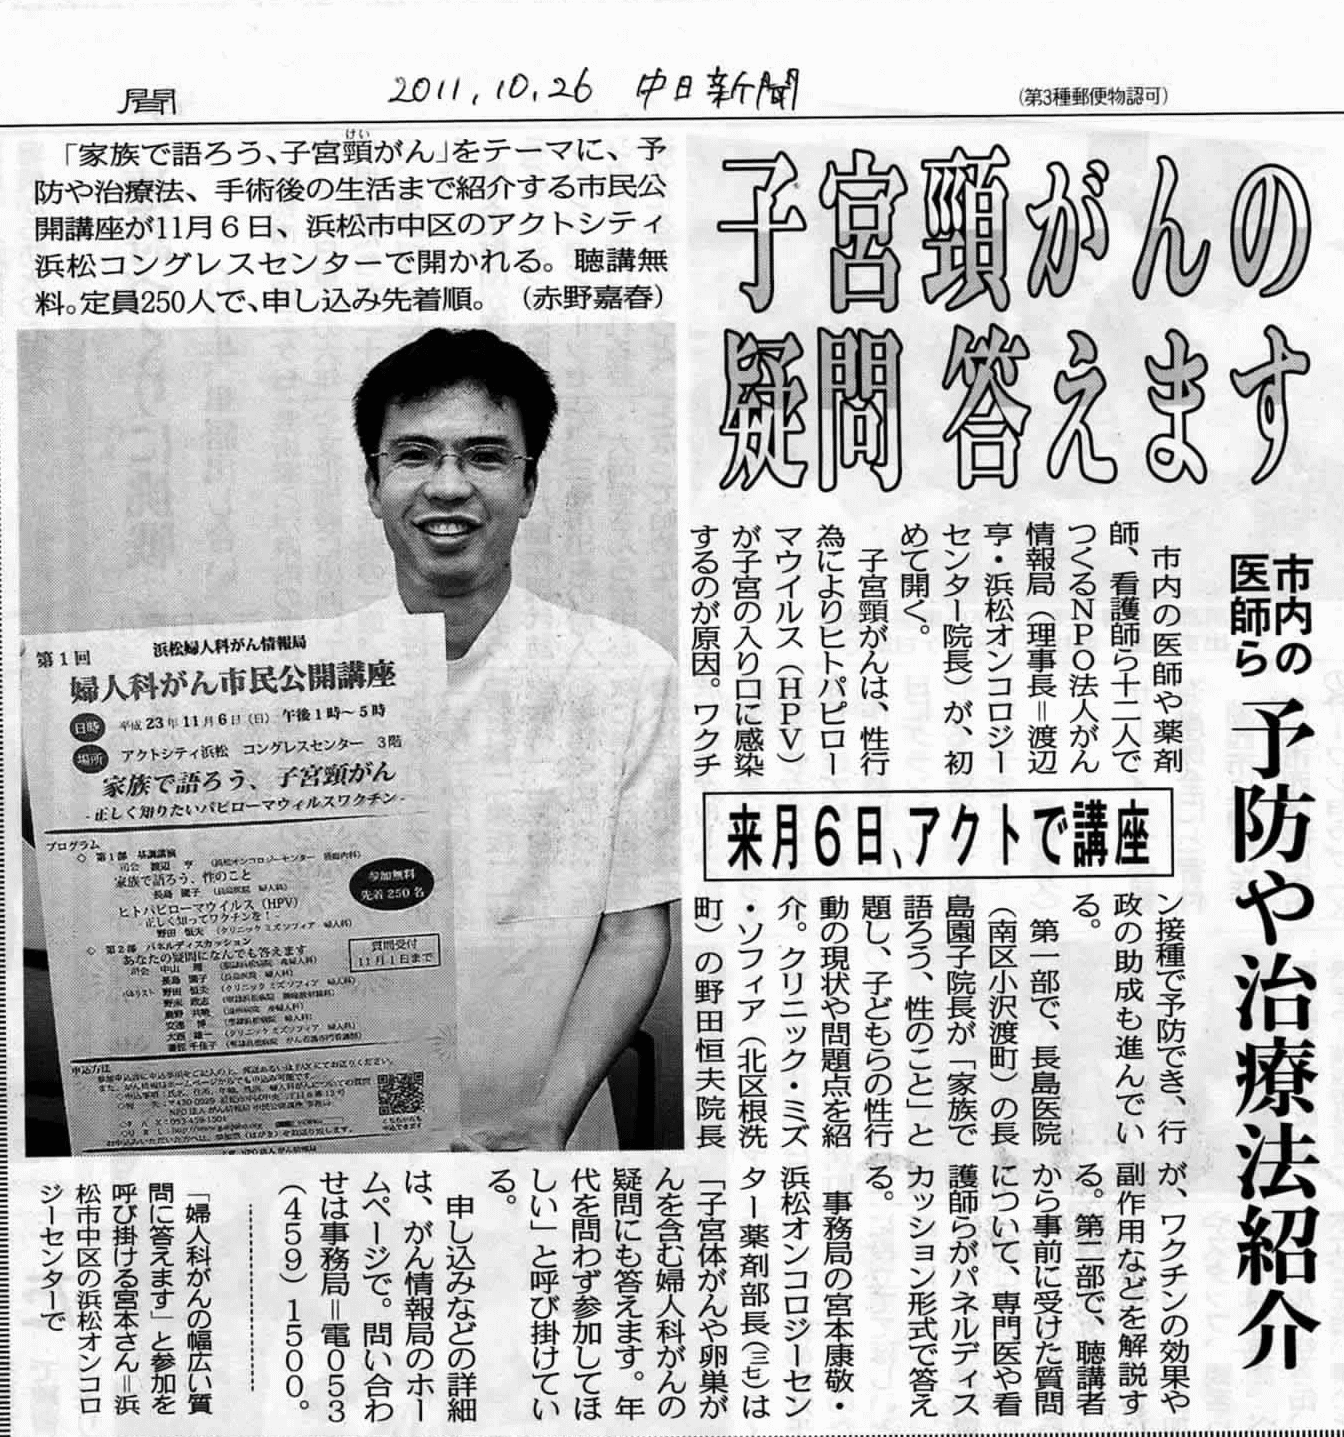 聞
2011.10.26 中日新聞
(第3種郵便物認可)
子宮頸がんの
疑問 答えます
市内の
医師ら
予防や治療法紹介
「家族で語ろう、子宮頸がん」をテーマに、予
けい
防や治療法、手術後の生活まで紹介する市民公
開講座が11月6日、浜松市中区のアクトシティ
浜松コングレスセンターで開かれる。聴講無
料。定員250人で、申し込み先着順。（赤野嘉春）
市内の医師や薬剤
師、看護師ら十二人で
つくるNPO法人がん
情報局（理事長＝渡辺
亨・浜松オンコロジー
センター院長）が、初
めて開く。
子宮頸がんは、性行
為によりヒトパピロー
マウイルス（HPV）
が子宮の入り口に感染
するのが原因。ワクチ
来月6日、アクトで講座
ン接種で予防でき、行
政の助成も進んでい
る。
第一部で、長島医院
（南区小沢渡町）の長
島園子院長が「家族で
語ろう、性のこと」と
題し、子どもらの性行
動の現状や問題点を紹
介。クリニック・ミズ
・ソフィア（北区根洗
町）の野田恒夫院長
が、ワクチンの効果や
副作用などを解説す
る。第二部で、聴講者
から事前に受けた質問
について、専門医や看
護師らがパネルディス
カッション形式で答え
る。
事務局の宮本康敬・
浜松オンコロジーセン
ター薬剤部長（三七）は
「子宮体がんや卵巣が
んを含む婦人科がんの
疑問にも答えます。年
代を問わず参加してほ
しい」と呼び掛けてい
る。
申し込みなどの詳細
は、がん情報局のホー
ムページで。問い合わ
せは事務局＝電053
（459）1500。
「婦人科がんの幅広い質
問に答えます」と参加を
呼び掛ける宮本さん＝浜
松市中区の浜松オンコロ
ジーセンターで
浜松婦人科がん情報局
第1回
婦人科がん市民公開講座
日時 平成23年11月6日（日） 午後1時～5時
場所 アクトシティ浜松 コングレスセンター 3階
家族で語ろう、子宮頸がん
-正しく知りたいパピローマウィルスワクチン-
プログラム
◇ 第1部 基調講演
司会 渡辺 亨 （浜松オンコロジーセンター 腫瘍内科）
家族で語ろう、性のこと
長島 園子 （長島医院 婦人科）
ヒトパピローマウイルス（HPV）
-正しく知ってワクチンを！-
野田 恒夫 （クリニック ミズソフィア 婦人科）
参加無料
先着250名
◇ 第2部 パネルディスカッション
あなたの疑問になんでも答えます
質問受付
11月1日まで
長島 園子 （長島医院 婦人科）
パネリスト 野田 恒夫 （クリニック ミズソフィア 婦人科）
申込方法